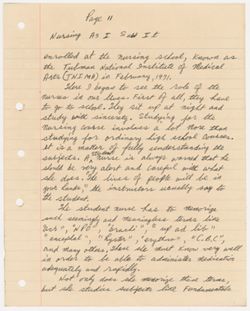 Page 11
Nursing As I See It
enrolled at the nursing school, known as
the Tubman National Institute of Medical
Arts (TNIMA) in February, 1971.
There I began to see the role of the
nurse as one lives. First of all, they have
to go to school. They sit up at night and
study with sincerity. Studying for the
nursing course involves a lot more than
studying for ordinary high school courses.
It is a matter of fully understanding the
subjects. A student nurse is always warned that she
should be very alert and careful with what
she does. "The lives of people will be in
your hands," the instructors usually say to
the student.
The student nurse has to memorize
such seemingly and meaningless terms like
"NPO", "ad lib"
"encephal", "hyster", "erythro", "C.B.C",
and many others. She must know very well
in order to be able to administer medication
adequately and rapidly.
Not only does she memorize these terms,
but she studies subjects like Fundamentals